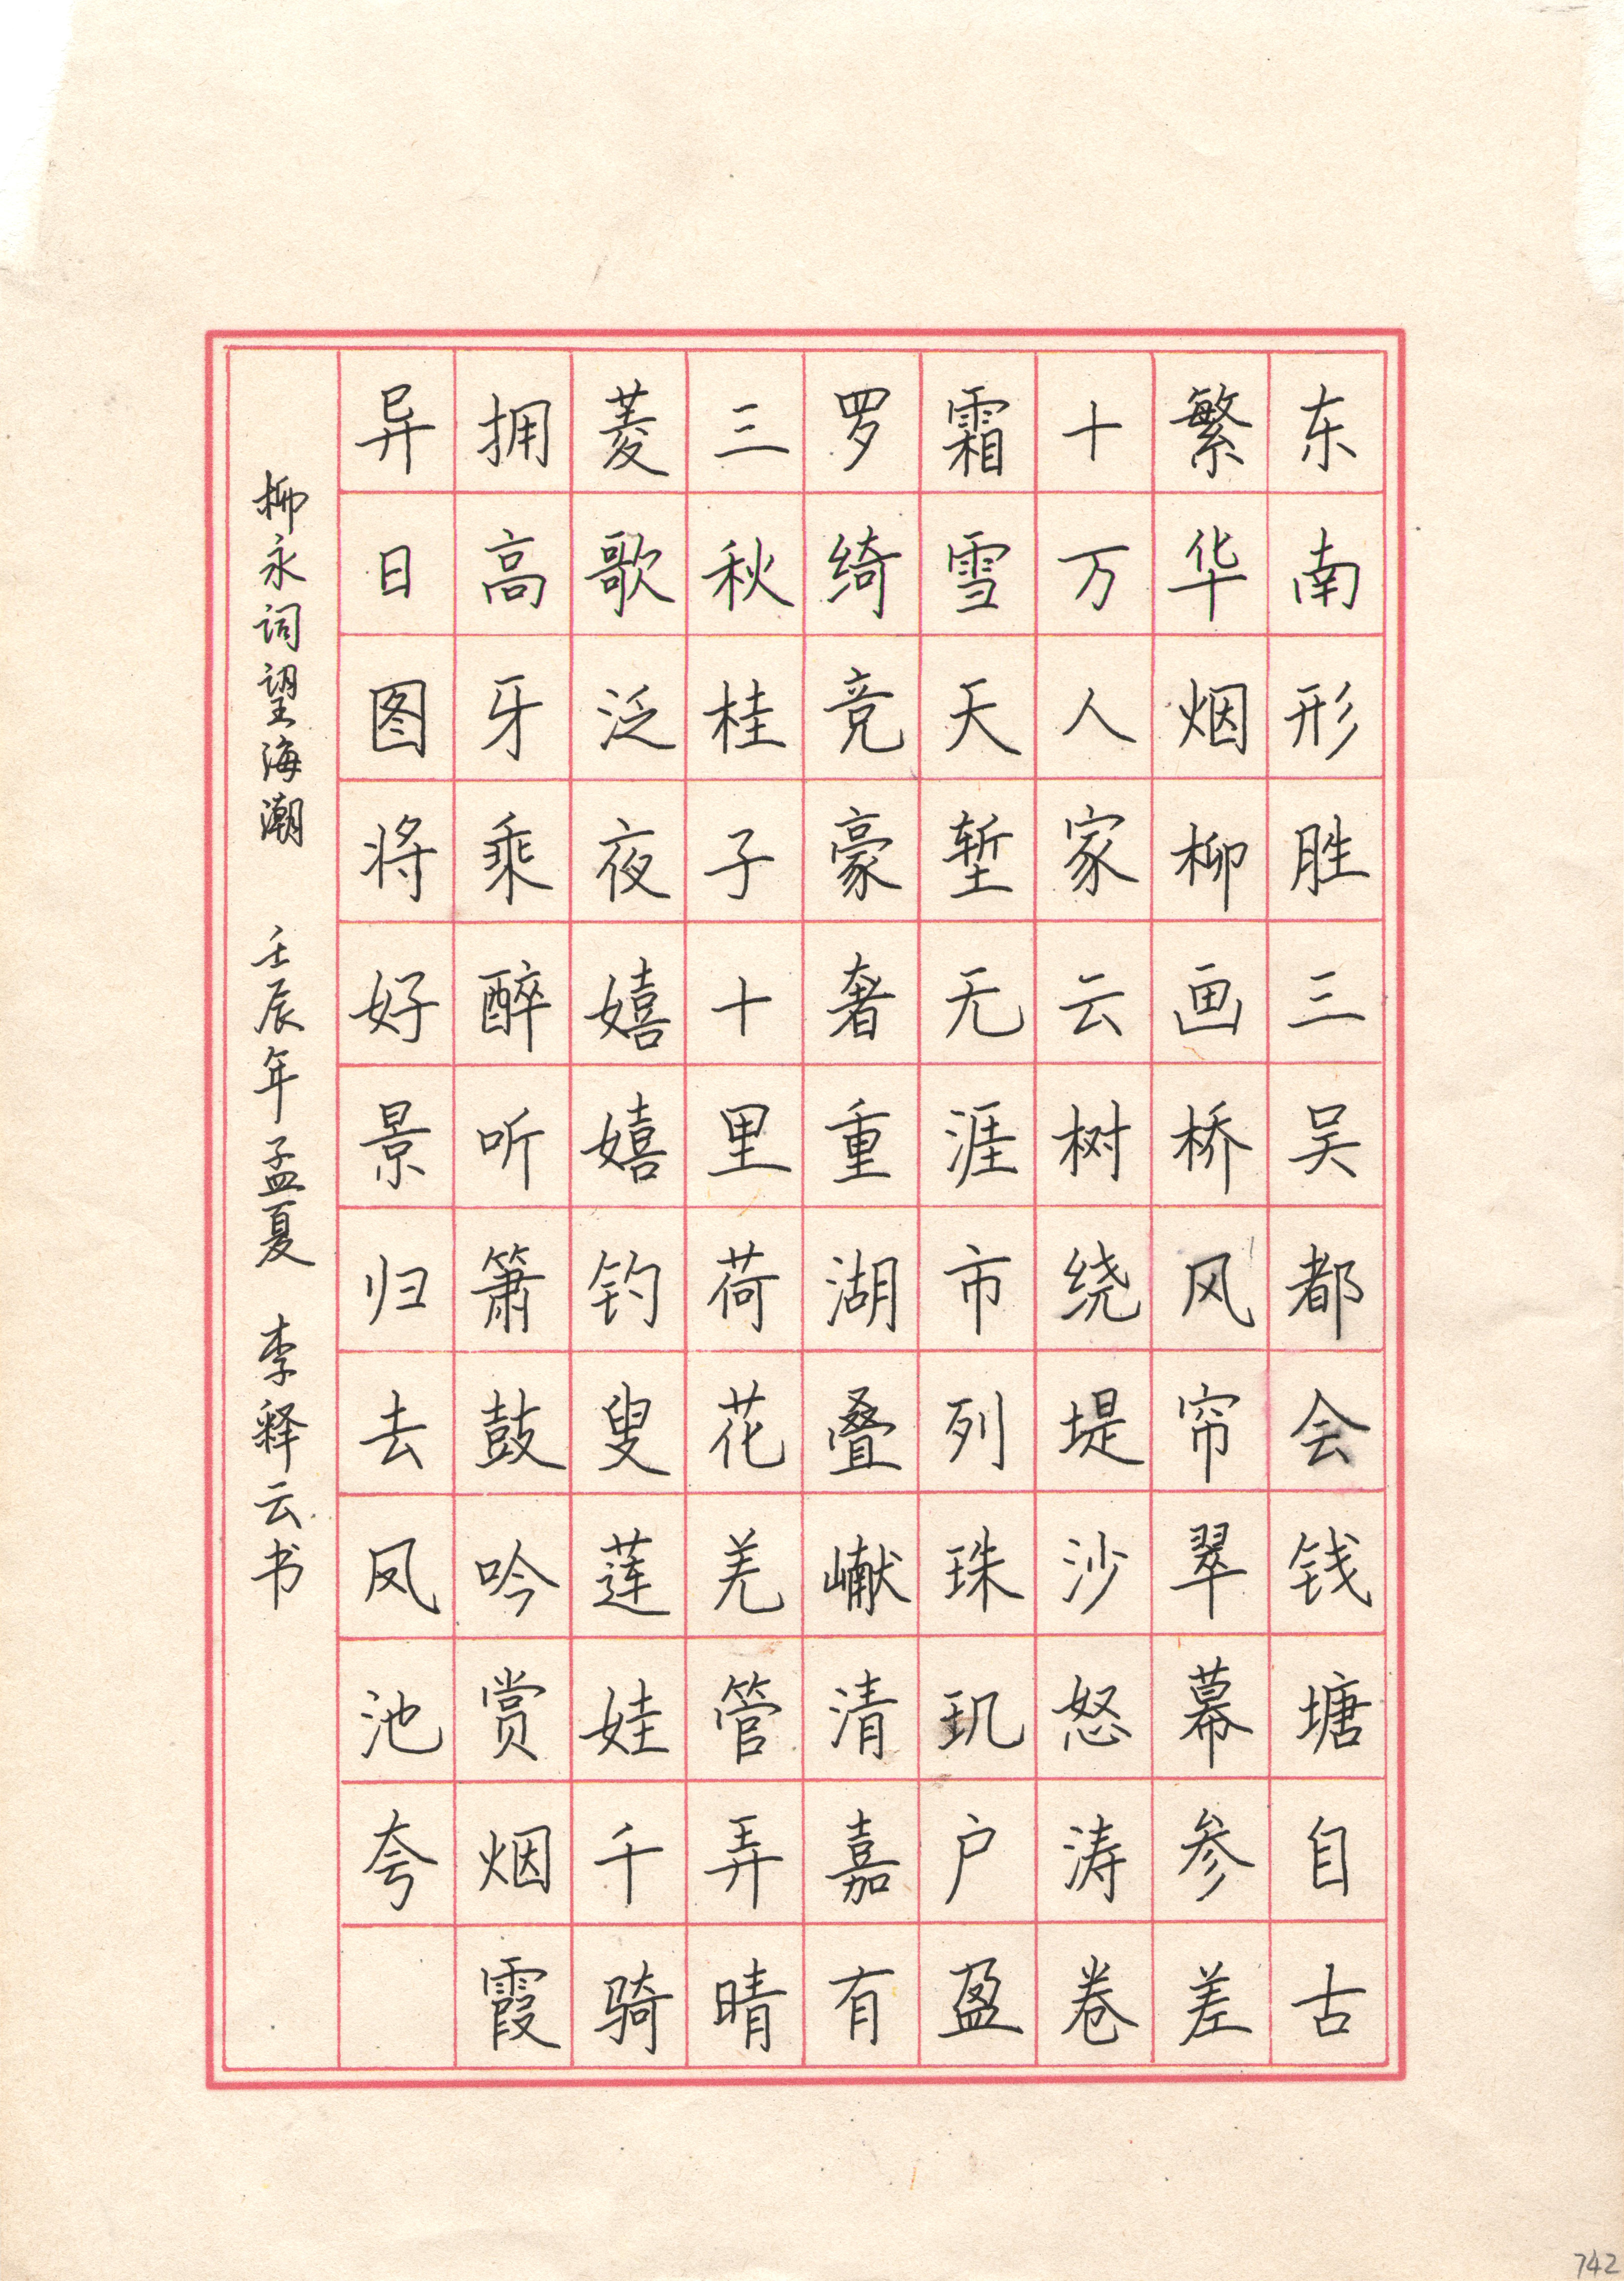 东南形胜三吴都会钱塘自古
繁华烟柳画桥风帘翠幕参差
十万人家云树绕堤沙怒涛卷
霜雪天堑无涯市列珠玑户盈
罗绮竞豪奢重湖叠巘清嘉有
三秋桂子十里荷花羌管弄晴
菱歌泛夜嬉嬉钓叟莲娃千骑
拥高牙乘醉听箫鼓吟赏烟霞
异日图将好景归去凤池夸
柳永词望海潮 壬辰年孟夏 李释云书
742